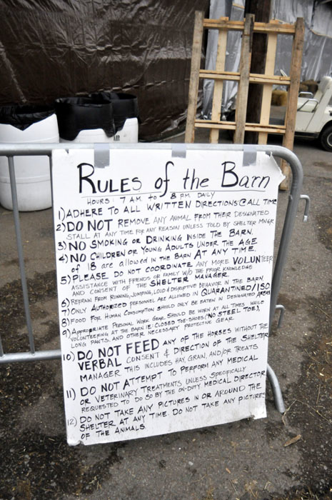 Rules of the Barn
HOURS 7 AM to 8 PM DAILY
1) ADHERE TO ALL WRITTEN DIRECTIONS @ ALL TIME
2) DO NOT REMOVE ANY ANIMAL FROM THEIR DESIGNATED
STALL AT ANY TIME FOR ANY REASON UNLESS TOLD BY SHELTER MNGR
3) NO SMOKING OR DRINKING INSIDE THE BARN
4) NO CHILDREN OR YOUNG ADULTS UNDER THE AGE
OF 18 ARE ALLOWED IN THE BARN AT ANY TIME
5) PLEASE DO NOT COORDINATE ANY MORE VOLUNTEER
ASSISTANCE WITH FRIENDS OR FAMILY W/O THE PRIOR KNOWLEDGE
AND CONSENT OF THE SHELTER MANAGER
6) REFRAIN FROM RUNNING, JUMPING, LOUD / DISRUPTIVE BEHAVIOR IN THE BARN
7) ONLY AUTHORIZED PERSONNEL ARE ALLOWED IN QUARANTINED/ISO
8) FOOD FOR HUMAN CONSUMPTION SHOULD ONLY BE EATEN IN DESIGNATED AREAS
9) APPROPRIATE PERSONAL WORK GEAR SHOULD BE WORN AT ALL TIMES WHILE
VOLUNTEERING AT THE BARN IE CLOSED TOE SHOES (NO STEEL TOE),
LONG PANTS, AND OTHER NECESSARY PROTECTIVE GEAR.
10) DO NOT FEED ANY OF THE HORSES WITHOUT THE
VERBAL CONSENT & DIRECTION OF THE SHELTER
MANAGER THIS INCLUDES HAY, GRAIN, AND/OR TREATS
11) DO NOT ATTEMPT TO PERFORM ANY MEDICAL
OR VETERINARY TREATMENTS UNLESS SPECIFICALLY
REQUESTED TO DO SO BY THE ON-DUTY MEDICAL DIRECTOR
12) DO NOT TAKE ANY PICTURES IN OR AROUND THE
SHELTER AT ANY TIME DO NOT TAKE ANY PICTURES
OF THE ANIMALS